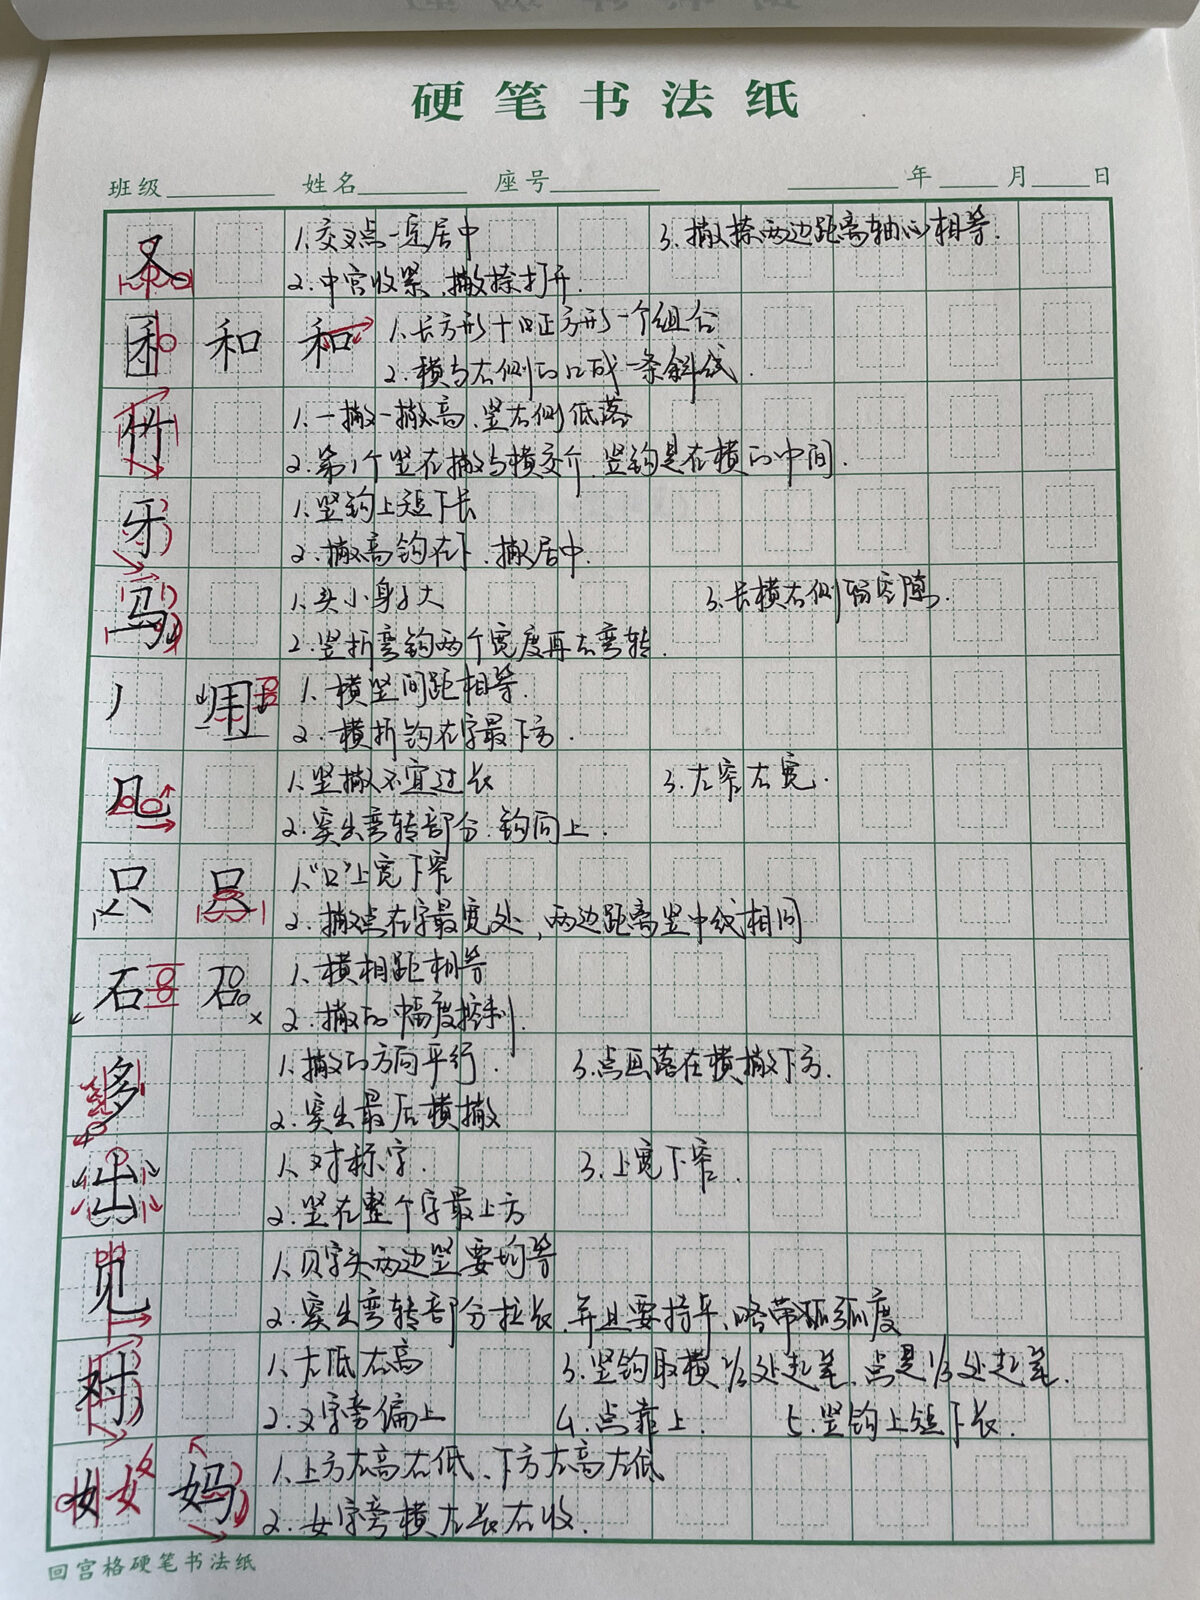 硬笔书法纸
班级 姓名 座号 年 月 日
又 1.交叉点一定居中 3.撇捺两边距离轴心相等.
2.中宫收紧、撇捺打开.
和 和 和 1.长方形+口正方形一个组合
2.横与右侧的口成一条斜线.
竹 1.一撇一撇高、竖右侧低落
2.第1个竖在撇与横交介、竖钩是在横的中间.
牙 1.竖钩上短下长
2.撇高钩在下、撇居中.
马 1.头小身子大 3.长横右侧留空隙.
2.竖折弯钩两个宽度再左弯转.
丿 用 1.横竖间距相等.
2.横折钩在字最下方.
几 1.竖撇不宜过长 3.左窄右宽.
2.突出弯转部分.钩向上.
只 只 1."口"上宽下窄
2.撇点在字最宽处,两边距离竖中线相同
石 石 1.横相距相等
2.撇的幅度控制.
多 1.撇的方向平行. 3.点画落在横撇下方.
2.突出最后横撇
出 1.对称字. 3.上宽下窄.
2.竖在整个字最上方
见 1.贝字头两边竖要均等
2.突出弯转部分拉长、并且要持平、略带弧度
对 1.左低右高 3.竖钩取横1/2处起笔、点是1/3处起笔.
2.又字旁偏上 4.点靠上. 5.竖钩上短下长.
女 女 妈 1.上方左高右低、下方左高左低
2.女字旁横左长右收.
回宫格硬笔书法纸